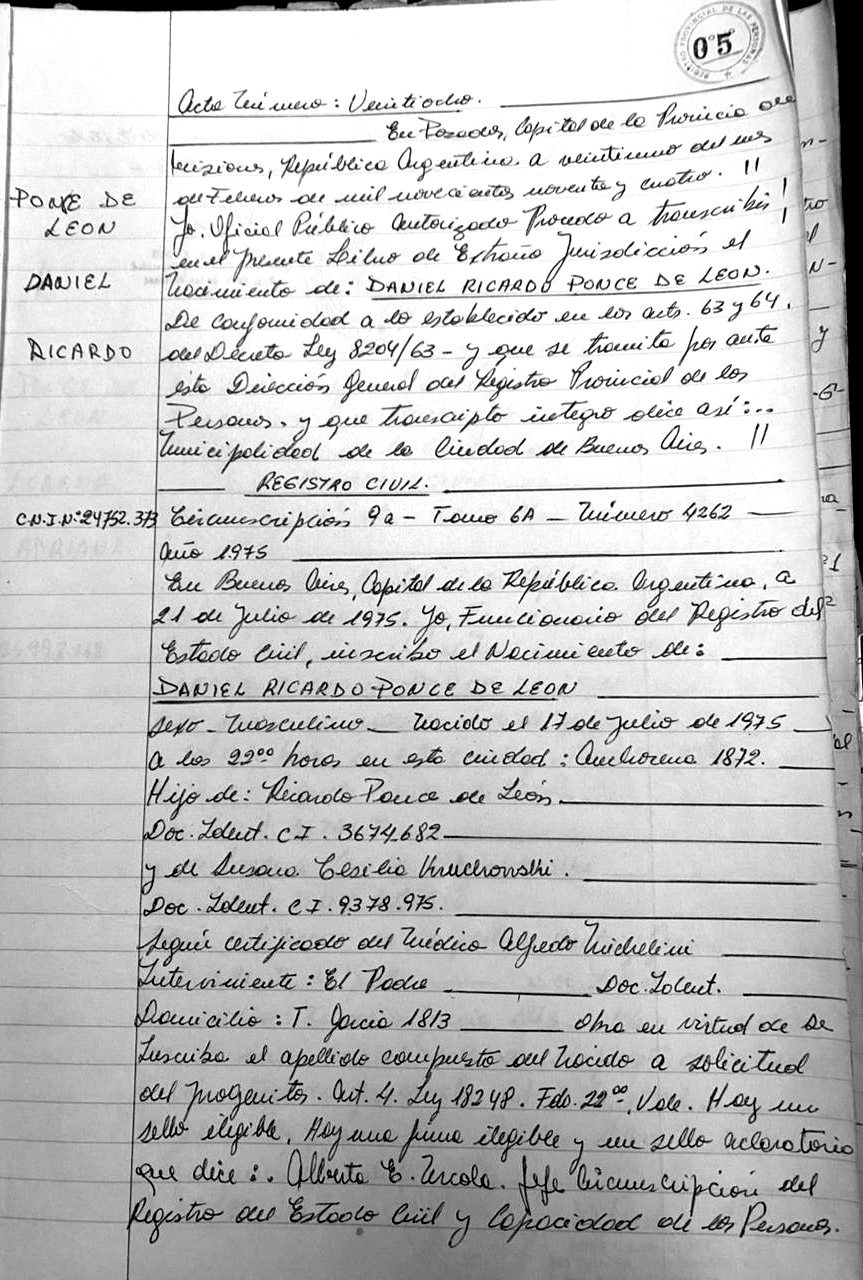 REGISTRO PROVINCIAL DE LAS PERSONAS
05
Acta Número: Veintiocho.
En Posadas, Capital de la Provincia de
Misiones, República Argentina. a veintiuno del mes
de Febrero de mil novecientos noventa y cuatro. //
Yo, Oficial Público Autorizado Procedo a transcribir
en el presente Libro de Extraña Jurisdicción el
Nacimiento de: DANIEL RICARDO PONCE DE LEON.
De conformidad a lo establecido en los arts. 63 y 64,
del Decreto Ley 8204/63 - y que se tramita por ante
esta Dirección General del Registro Provincial de las
Personas. y que transcripto integro dice así:..
Municipalidad de la Ciudad de Buenos Aires. //
REGISTRO CIVIL.
Circunscripción 9a - Tomo 6A - Número 4262
Año 1975
En Buenos Aires, Capital de la República Argentina, a
21 de Julio de 1975. Yo, Funcionario del Registro del
Estado Civil, inscribo el Nacimiento de:
DANIEL RICARDO PONCE DE LEON
sexo - Masculino - Nacido el 17 de Julio de 1975
a las 22ºº horas en esta ciudad: Anchorena 1872.
Hijo de: Ricardo Ponce de León.
Doc. Ident. C.I. 3674.682
y de Susana Cesilia Kruchowski.
Doc. Ident. C.I. 9378.975.
según certificado del Médico Alfredo Michelini
Interviniente: El Padre Doc. Ident.
Domicilio: T. García 1813 obra en virtud de Se
Inscriba el apellido compuesto del Nacido a solicitud
del progenitor. Art. 4. Ley 18248. Fdo. 22ºº, Vale. Hay un
sello elegible. Hay una firma ilegible y un sello aclaratorio
que dice:. Alberto E. Jefe Circunscripción del
Registro del Estado Civil y Capacidad de las Personas.
PONCE DE
LEON
DANIEL
RICARDO
C.N.I.Nº:24752.373